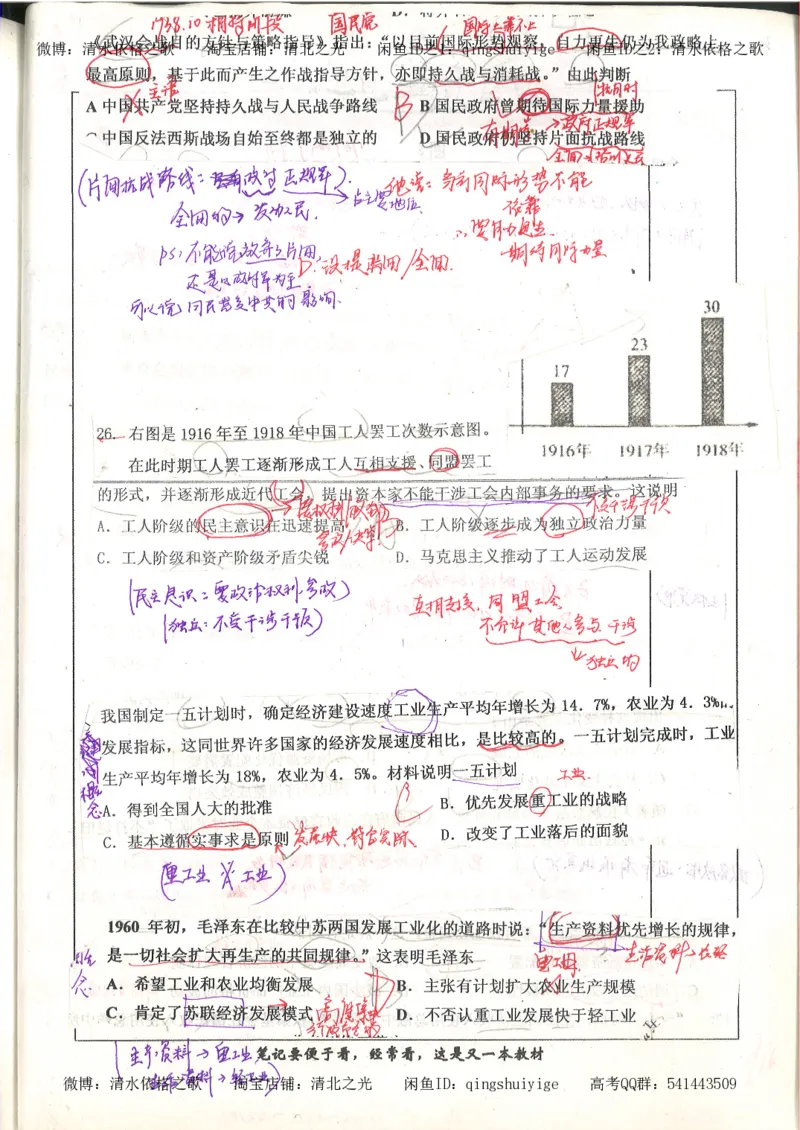 1938.10 相持阶段 国民党
《武汉会战目的方针与策略指导》指出：“以目前国际形势观察，自力更生仍为我政略上
微博：清水依格之歌 淘宝店铺：清北之光 闲鱼ID之1：qingshuiyige 闲鱼ID之2：清水依格之歌
最高原则，基于此而产生之作战指导方针，亦即持久战与消耗战。”由此判断
A 中国共产党坚持持久战与人民战争路线 B 国民政府曾期待国际力量援助
中国反法西斯战场自始至终都是独立的 D 国民政府仍坚持片面抗战路线
(片面抗战路线：政府 正规军)
全面的→发动人民.
占主要地位
独立：当前国际形势不能
依靠
∴要自力更生
期待国际力量
ps：不能除放弃了片面,
还是以政府军为主
D：没提片面/全面.
可以说 国民党受中共的影响.
30
23
17
26. 右图是 1916 年至 1918 年中国工人罢工次数示意图。
1916年 1917年 1918年
在此时期工人罢工逐渐形成工人互相支援、同盟罢工
的形式，并逐渐形成近代工会，提出资本家不能干涉工会内部事务的要求。这说明
A. 工人阶级的民主意识在迅速提高 B. 工人阶级逐步成为独立政治力量
C. 工人阶级和资产阶级矛盾尖锐 D. 马克思主义推动了工人运动发展
(民主意识：要政治权利.参政)
(独立：不受干涉干预)
互相支援、同盟工会
不允许其他人参与干涉
↓独立的
我国制定一五计划时，确定经济建设速度工业生产平均年增长为 14．7%，农业为 4．3%
发展指标，这同世界许多国家的经济发展速度相比，是比较高的。一五计划完成时，工业
生产平均年增长为 18%，农业为 4．5%。材料说明一五计划
概念
工业
A. 得到全国人大的批准 C B. 优先发展重工业的战略
C. 基本遵循实事求是原则 发展快、符合实际 D. 改变了工业落后的面貌
(重工业 工业)
1960 年初，毛泽东在比较中苏两国发展工业化的道路时说：“生产资料优先增长的规律，
是一切社会扩大再生产的共同规律。”这表明毛泽东
概念
重工业 生活资料
A. 希望工业和农业均衡发展 B. 主张有计划扩大农业生产规模
C. 肯定了苏联经济发展模式 D. 不否认重工业发展快于轻工业
高度集中
(生产资料→重工业
生活资料→轻工业)
笔记要便于看，经常看，这是又一本教材
微博：清水依格之歌 淘宝店铺：清北之光 闲鱼ID：qingshuiyige 高考QQ群：541443509